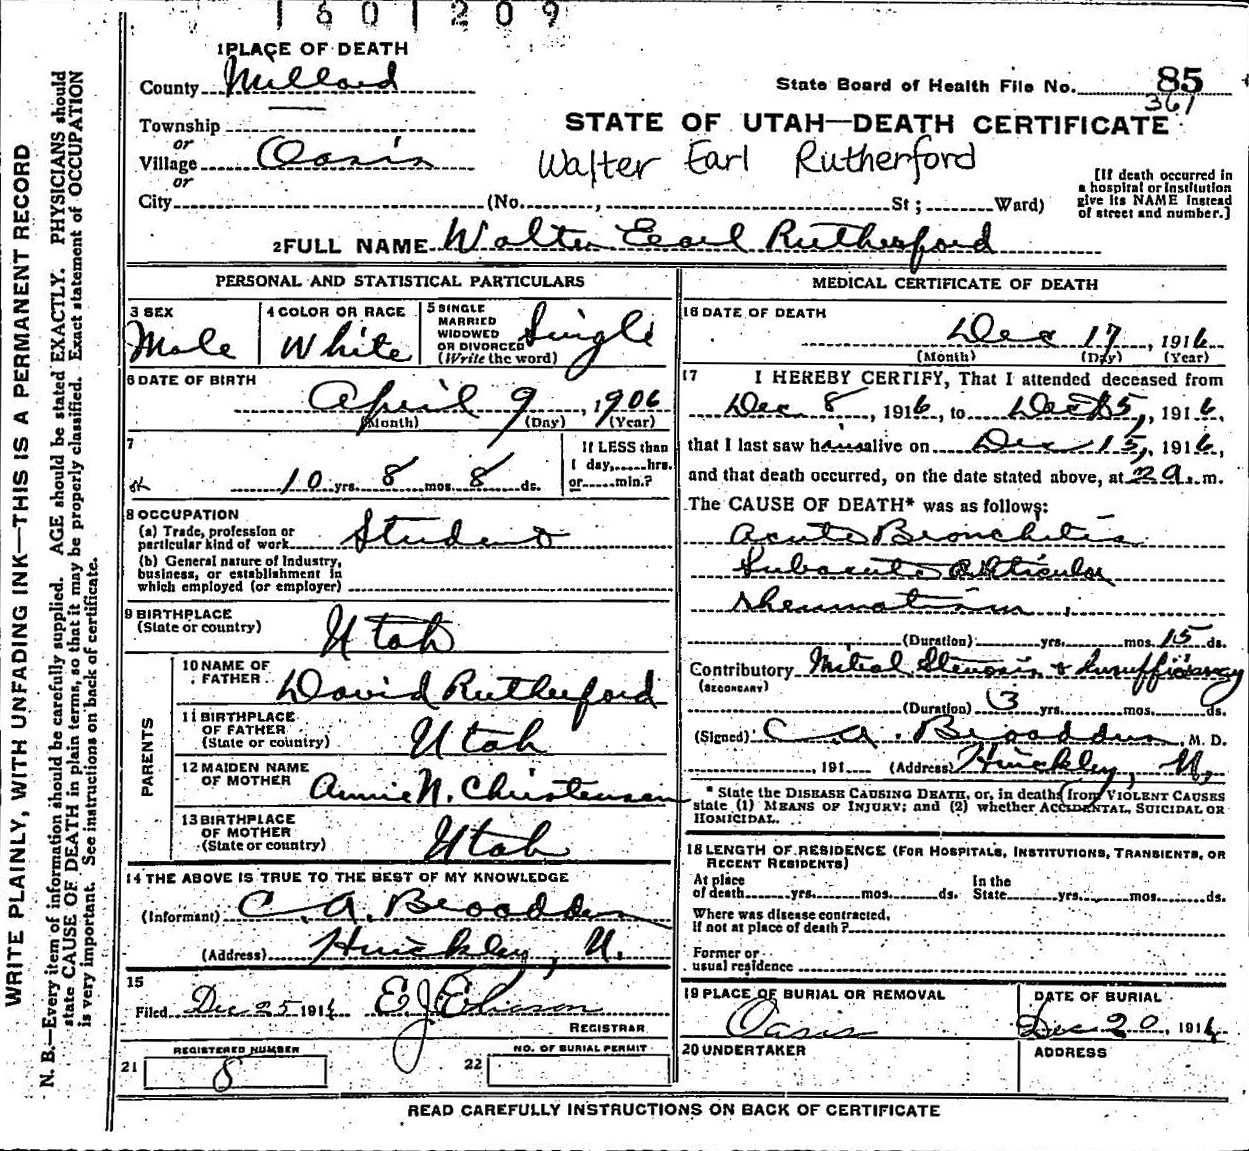 1601209
1 PLACE OF DEATH
County Millard
State Board of Health File No. 85
361
Township
or
Village Oasis
or
STATE OF UTAH—DEATH CERTIFICATE
Walter Earl Rutherford
City (No. , St ; Ward)
[If death occurred in
a hospital or institution
give its NAME instead
of street and number.]
2 FULL NAME Walter Earl Rutherford
PERSONAL AND STATISTICAL PARTICULARS
3 SEX
Male
4 COLOR OR RACE
White
5 SINGLE
MARRIED
WIDOWED
OR DIVORCED
(Write the word)
Single
6 DATE OF BIRTH
April 9, 1906
(Month) (Day) (Year)
7
10 yrs. 8 mos. 8 ds.
If LESS than
1 day,......hrs.
or......min.?
8 OCCUPATION
(a) Trade, profession or
particular kind of work Student
(b) General nature of Industry,
business, or establishment in
which employed (or employer)
9 BIRTHPLACE
(State or country) Utah
PARENTS
10 NAME OF
FATHER David Rutherford
11 BIRTHPLACE
OF FATHER
(State or country) Utah
12 MAIDEN NAME
OF MOTHER Annie N. Christensen
13 BIRTHPLACE
OF MOTHER
(State or country) Utah
14 THE ABOVE IS TRUE TO THE BEST OF MY KNOWLEDGE
(Informant) C. A. Broaddus
(Address) Hinckley, U.
15
Filed Dec 25 1916 E J Eliason
REGISTRAR
21 REGISTERED NUMBER
8
22 NO. OF BURIAL PERMIT
MEDICAL CERTIFICATE OF DEATH
16 DATE OF DEATH
Dec 17, 1916
(Month) (Day) (Year)
17 I HEREBY CERTIFY, That I attended deceased from
Dec 8, 1916, to Dec 15, 1916,
that I last saw him alive on Dec 15, 1916,
and that death occurred, on the date stated above, at 2 a. m.
The CAUSE OF DEATH* was as follows:
Acute Bronchitis
Subacute Articular
Rheumatism.
(Duration) yrs. mos. 15 ds.
Contributory Mitral Stenosis & Insufficiency
(SECONDARY)
(Duration) 3 yrs. mos. ds.
(Signed) C. A. Broaddus, M. D.
, 191 (Address) Hinckley, U.
* State the DISEASE CAUSING DEATH, or, in deaths from VIOLENT CAUSES
state (1) MEANS OF INJURY; and (2) whether ACCIDENTAL, SUICIDAL OR
HOMICIDAL.
18 LENGTH OF RESIDENCE (FOR HOSPITALS, INSTITUTIONS, TRANSIENTS, OR
RECENT RESIDENTS)
At place
of death......yrs.......mos.......ds.
In the
State......yrs.......mos.......ds.
Where was disease contracted,
If not at place of death?
Former or
usual residence
19 PLACE OF BURIAL OR REMOVAL
Oasis
DATE OF BURIAL
Dec 20, 1916
20 UNDERTAKER
ADDRESS
READ CAREFULLY INSTRUCTIONS ON BACK OF CERTIFICATE
WRITE PLAINLY, WITH UNFADING INK—THIS IS A PERMANENT RECORD
N. B.—Every item of information should be carefully supplied. AGE should be stated EXACTLY. PHYSICIANS should
state CAUSE OF DEATH in plain terms, so that it may be properly classified. Exact statement of OCCUPATION
is very important. See instructions on back of certificate.